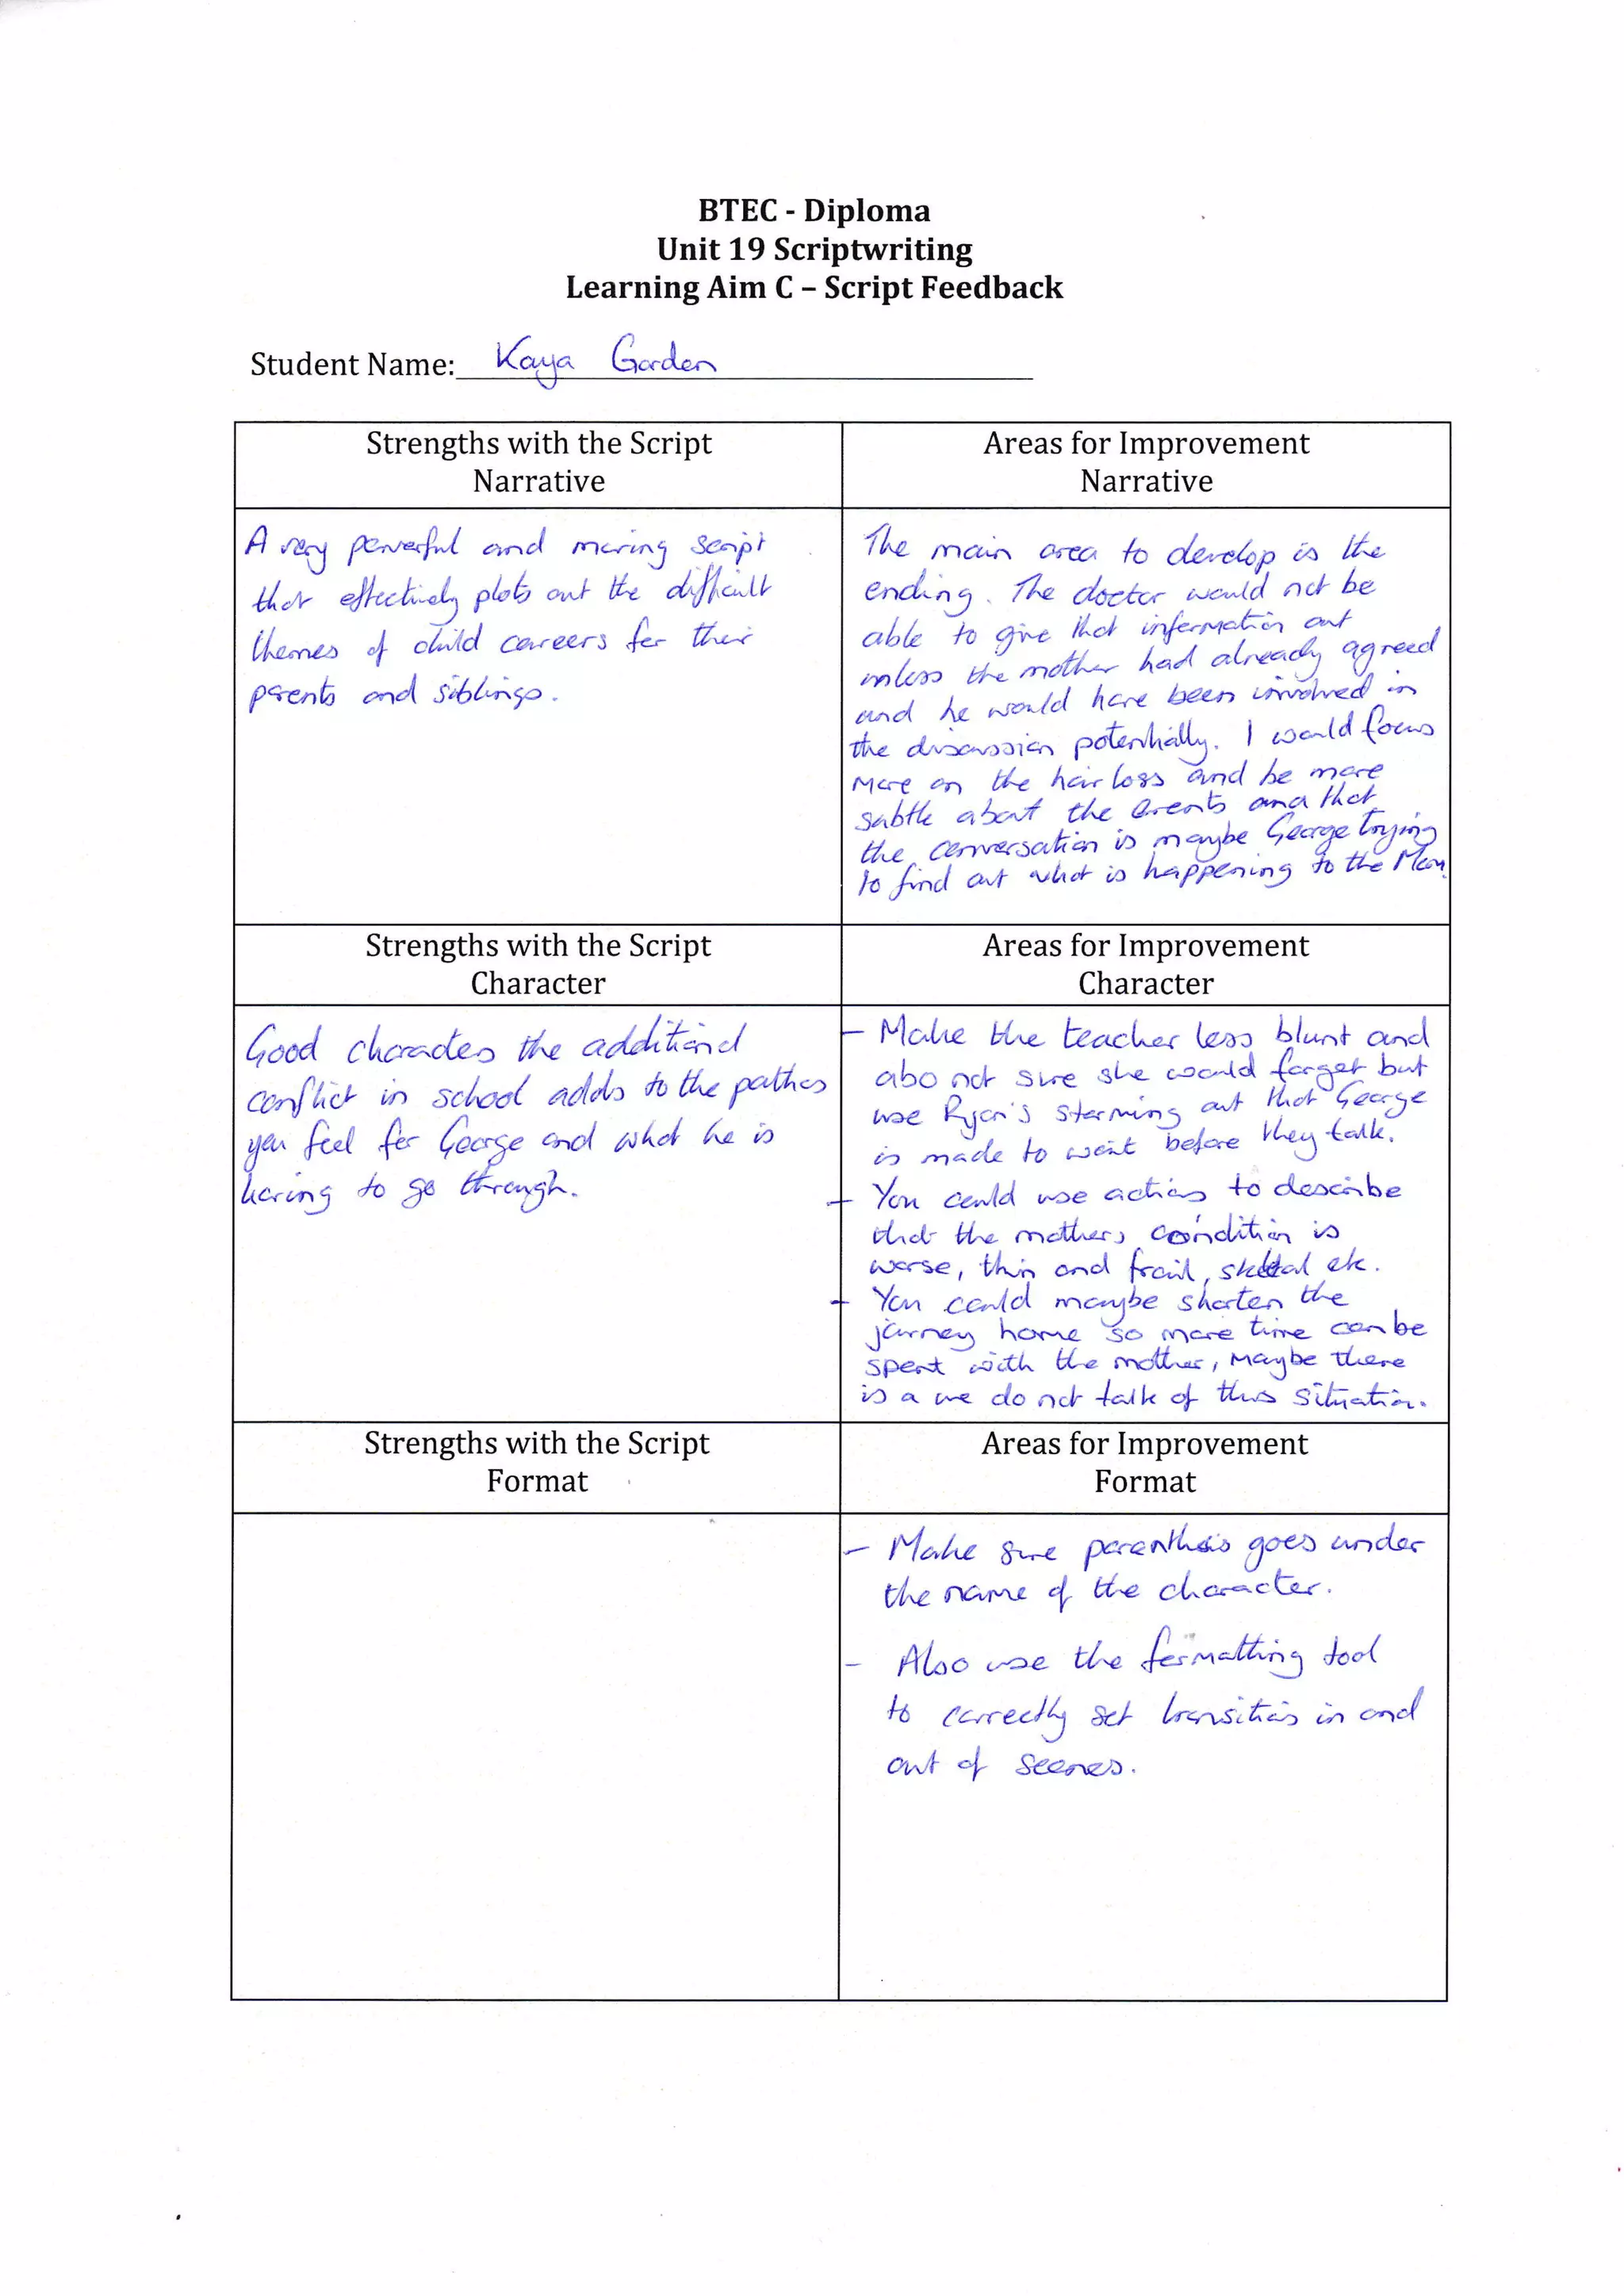 BTEC - Diploma
Unit 19 Scriptwriting
Learning Aim C – Script Feedback
Student Name: Kaya Gorden
Strengths with the Script
Narrative
A very powerful and moving script
that effectively plots out the difficult
themes of child careers for their
parents and siblings.
Areas for Improvement
Narrative
The main area to develop is the
ending. The doctor would not be
able to give that information out
unless the mother had already agreed
and he would have been involved in
the discussion potentially. I would focus
more on the hair loss and be more
subtle about the events and that
the conversation is maybe George trying
to find out what is happening to the Mom.
Strengths with the Script
Character
Good characters the additional
conflict in school adds to the pathos
you feel for George and what he is
having to go through.
Areas for Improvement
Character
- Make the teacher less blunt and
also not sure she would forget but
use Ryan's storming out that George
is made to wait before they talk.
- You could use actions to describe
that the mothers condition is
worse, thin and frail, skeletal etc.
- You could maybe shorten the
journey home so more time can be
spent with the mother, maybe there
is a we do not talk of this situation.
Strengths with the Script
Format
Areas for Improvement
Format
- Make sure paranthesis goes under
the name of the character.
- Also use the formatting tool
to correctly set transitions in and
out of scenes.